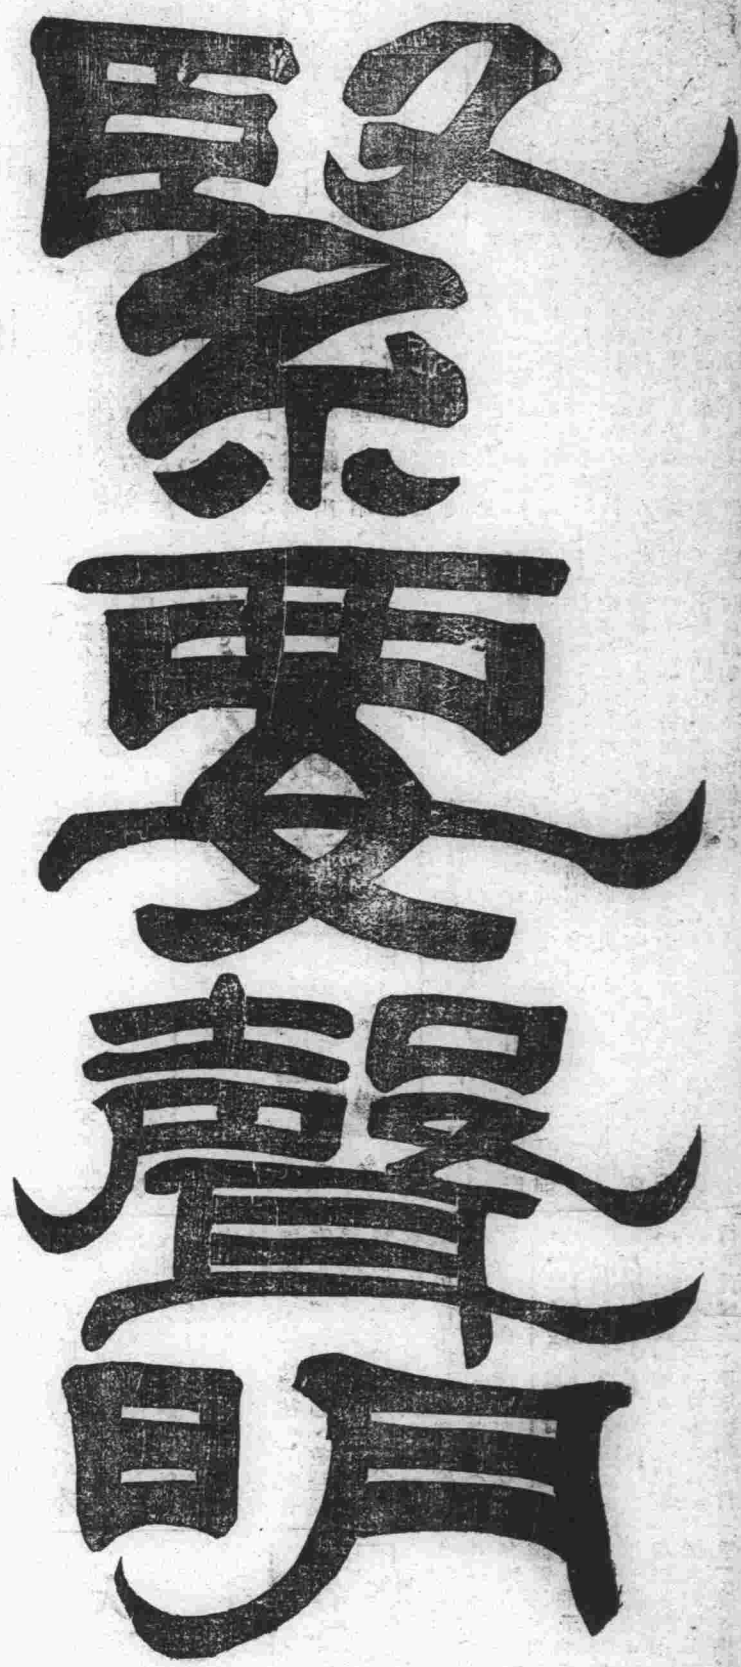 緊要聲明